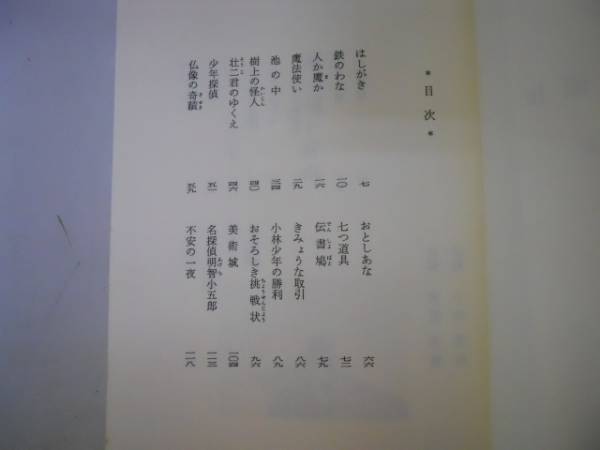 * 目次 *
はしがき 七
鉄のわな 一〇
人か魔か 一六
魔法使い 二九
池の中 三四
樹上の怪人 四〇
壮二君のゆくえ 四六
少年探偵 五一
仏像の奇蹟 五九
おとしあな 六六
七つ道具 七二
伝書鳩 七九
きみょうな取引 八六
小林少年の勝利 八九
おそろしき挑戦状 九六
美術城 一〇四
名探偵明智小五郎 一一三
不安の一夜 一一八